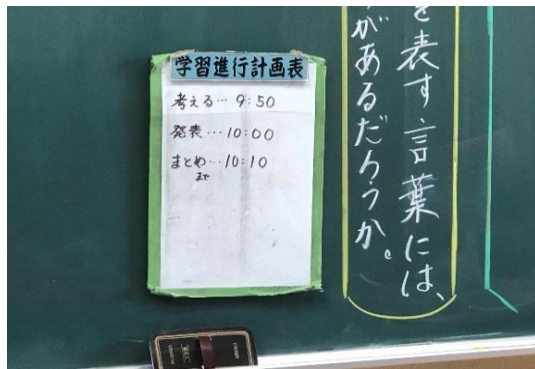 学習進行計画表
考える…9:50
発表…10:00
まとめ…10:10
まで
を表す言葉には、
があるだろうか。